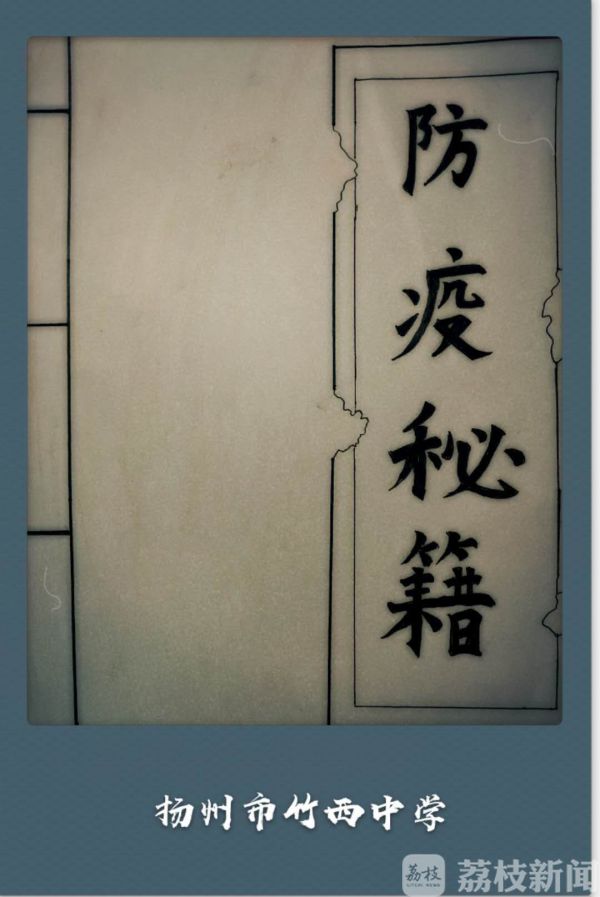 防疫秘籍
扬州市竹西中学
荔枝
LITCHI NEWS
荔枝新闻